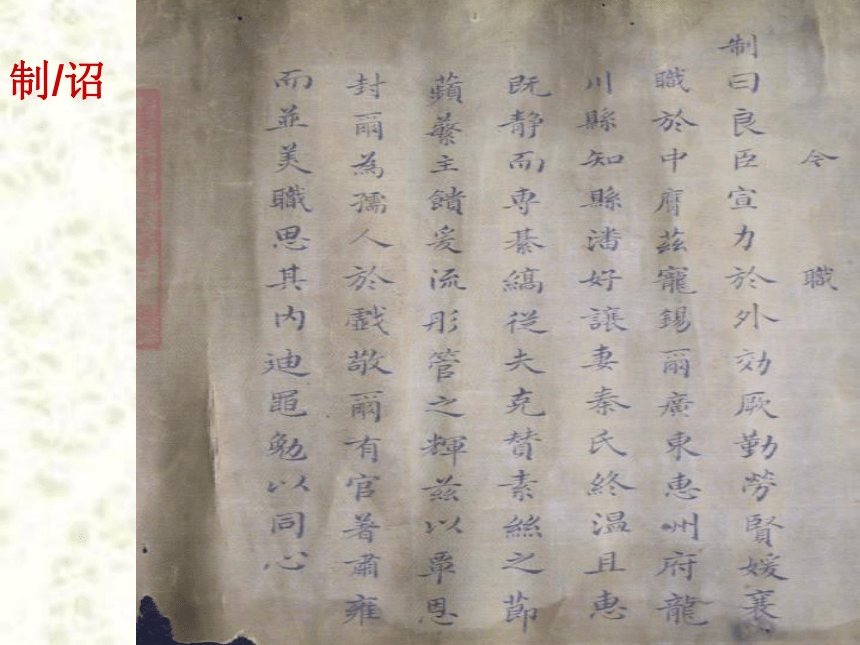 制/诏
令職
制曰良臣宣力於外効厥勤勞賢媛襄
職於中膺茲寵錫爾廣東惠州府龍
川縣知縣潘好讓妻秦氏終温且惠
既静而專綦縞從夫克賛素絲之節
蘋蘩主饋爰流彤管之輝茲以覃恩
封爾為孺人於戲敬爾有官著肅雍
而並美職思其內迪黽勉以同心